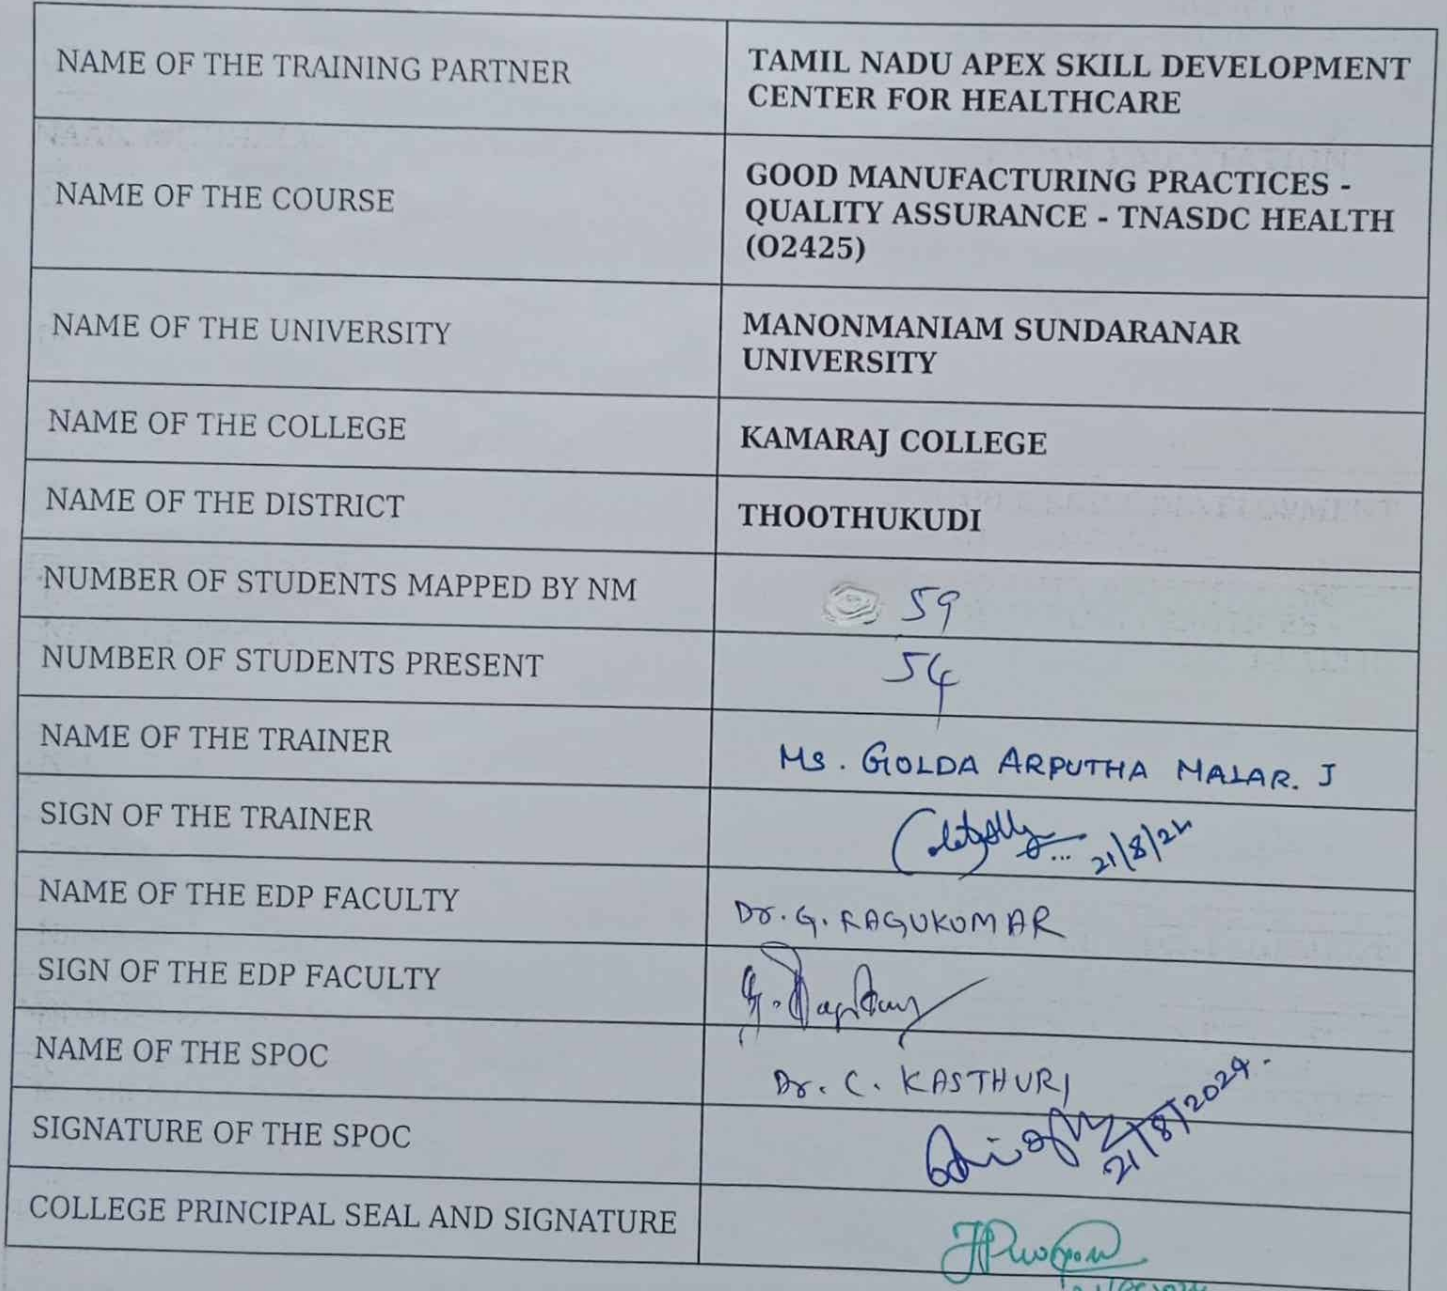 NAME OF THE TRAINING PARTNER
TAMIL NADU APEX SKILL DEVELOPMENT
CENTER FOR HEALTHCARE
NAME OF THE COURSE
GOOD MANUFACTURING PRACTICES -
QUALITY ASSURANCE - TNASDC HEALTH
(O2425)
NAME OF THE UNIVERSITY
MANONMANIAM SUNDARANAR
UNIVERSITY
NAME OF THE COLLEGE
KAMARAJ COLLEGE
NAME OF THE DISTRICT
THOOTHUKUDI
NUMBER OF STUDENTS MAPPED BY NM
59
NUMBER OF STUDENTS PRESENT
54
NAME OF THE TRAINER
Ms. GOLDA ARPUTHA MALAR. J
SIGN OF THE TRAINER
21/8/24
NAME OF THE EDP FACULTY
Dr. G. RAGUKUMAR
SIGN OF THE EDP FACULTY
NAME OF THE SPOC
Dr. C. KASTHURI
SIGNATURE OF THE SPOC
21/8/2024.
COLLEGE PRINCIPAL SEAL AND SIGNATURE